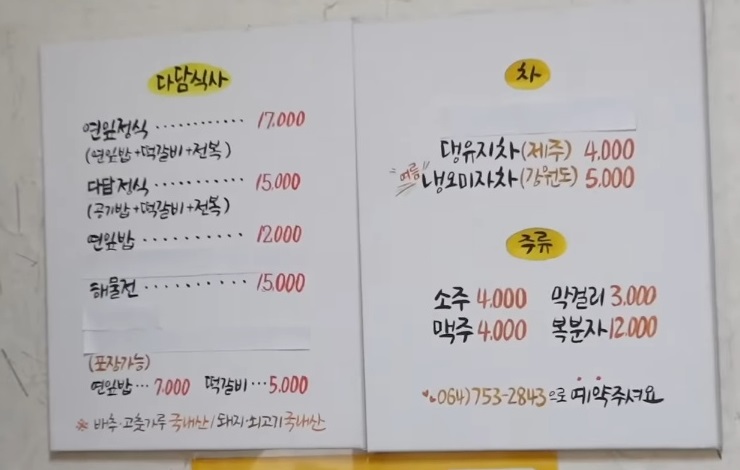 다담식사
연잎정식 ············ 17.000
(연잎밥+떡갈비+전복)
다담정식 ············ 15.000
(공기밥+떡갈비+전복)
연잎밥 ············ 12.000
해물전 ············ 15.000
(포장가능)
연잎밥··· 7.000 떡갈비··· 5.000
※ 배추·고춧가루 국내산/ 돼지·쇠고기 국내산
차
댕유지차(제주) 4.000
"여름" 냉오미자차(강원도) 5.000
주류
소주 4.000 막걸리 3.000
맥주 4.000 복분자 12.000
064)753-2843으로 예약주셔요